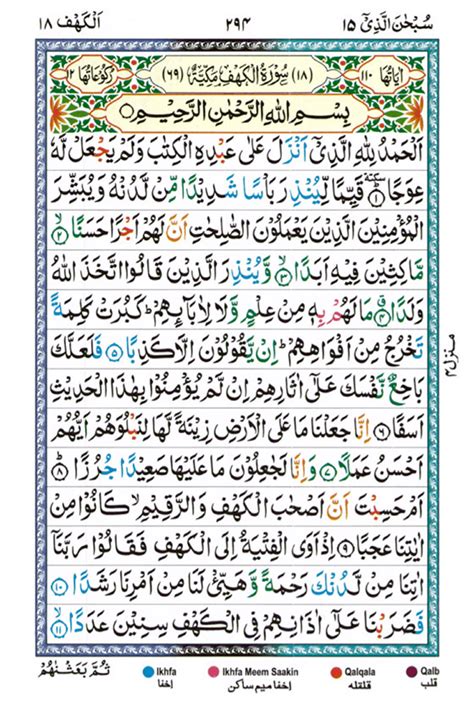 سُبْحٰنَ الَّذِیْۤ ١٥ ٢٩٤ اَلْكَهْف ١٨
اٰيَاتُهَا ١١٠ (١٨) سُوْرَةُ الْكَهْفِ مَكِّيَّةٌ (٦٩) رُكُوْعَاتُهَا ١٢
بِسْمِ اللّٰهِ الرَّحْمٰنِ الرَّحِيْمِ
اَلْحَمْدُ لِلّٰهِ الَّذِیْۤ اَنْزَلَ عَلٰى عَبْدِهِ الْكِتٰبَ وَلَمْ يَجْعَلْ لَّهٗ
عِوَجًا ۜ ١ قَيِّمًا لِّيُنْذِرَ بَاْسًا شَدِيْدًا مِّنْ لَّدُنْهُ وَيُبَشِّرَ
الْمُؤْمِنِيْنَ الَّذِيْنَ يَعْمَلُوْنَ الصّٰلِحٰتِ اَنَّ لَهُمْ اَجْرًا حَسَنًا ٢
مَّاكِثِيْنَ فِيْهِ اَبَدًا ٣ وَّيُنْذِرَ الَّذِيْنَ قَالُوا اتَّخَذَ اللّٰهُ
وَلَدًا ٤ مَا لَهُمْ بِهٖ مِنْ عِلْمٍ وَّلَا لِاٰبَآئِهِمْ ؕ كَبُرَتْ كَلِمَةً
تَخْرُجُ مِنْ اَفْوَاهِهِمْ ؕ اِنْ يَّقُوْلُوْنَ اِلَّا كَذِبًا ٥ فَلَعَلَّكَ
بَاخِعٌ نَّفْسَكَ عَلٰۤى اٰثَارِهِمْ اِنْ لَّمْ يُؤْمِنُوْا بِهٰذَا الْحَدِيْثِ
اَسَفًا ٦ اِنَّا جَعَلْنَا مَا عَلَى الْاَرْضِ زِيْنَةً لَّهَا لِنَبْلُوَهُمْ اَيُّهُمْ
اَحْسَنُ عَمَلًا ٧ وَاِنَّا لَجٰعِلُوْنَ مَا عَلَيْهَا صَعِيْدًا جُرُزًا ٨
اَمْ حَسِبْتَ اَنَّ اَصْحٰبَ الْكَهْفِ وَالرَّقِيْمِ ۙ كَانُوْا مِنْ
اٰيٰتِنَا عَجَبًا ٩ اِذْ اَوَى الْفِتْيَةُ اِلَى الْكَهْفِ فَقَالُوْا رَبَّنَاۤ
اٰتِنَا مِنْ لَّدُنْكَ رَحْمَةً وَّهَيِّئْ لَنَا مِنْ اَمْرِنَا رَشَدًا ١٠
فَضَرَبْنَا عَلٰۤى اٰذَانِهِمْ فِى الْكَهْفِ سِنِيْنَ عَدَدًا ١١
منزل ٤
ثُمَّ بَعَثْنٰهُمْ
Ikhfa اخفا
Ikhfa Meem Saakin اخفا میم ساکن
Qalqala قلقله
Qalb قلب